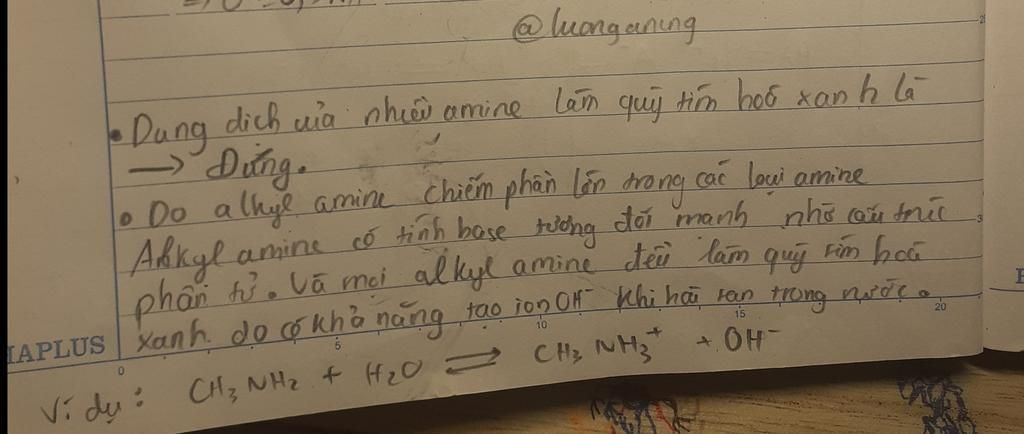 @luonganing
• Dung dịch của nhiều amine làm quỳ tím hoá xanh là
→ Đúng.
• Do alkyl amine chiếm phần lớn trong các loại amine
Alkyl amine có tính base tương đối mạnh nhờ cấu trúc
phân tử. Và mọi alkyl amine đều làm quỳ tím hoá
xanh do có khả năng tạo ion OH⁻ khi hoà tan trong nước.
MAPLUS 0 5 10 15 20
Ví dụ: CH₃NH₂ + H₂O ⇌ CH₃NH₃⁺ + OH⁻